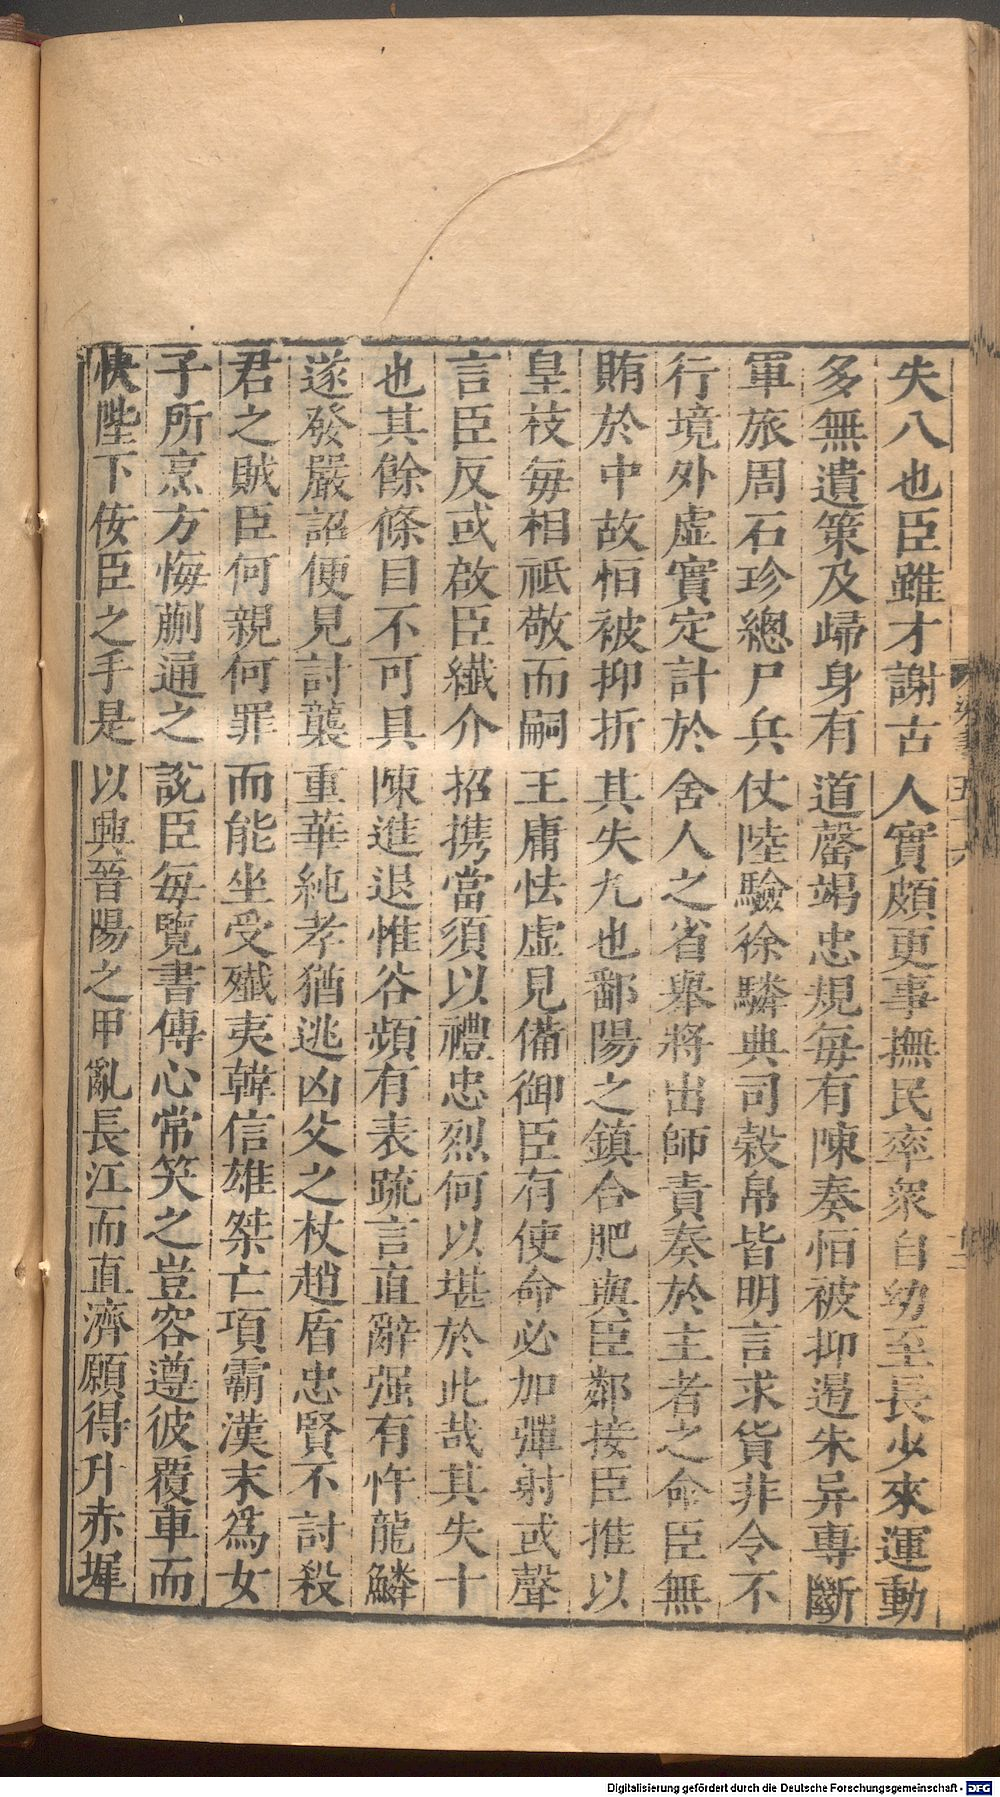 失八也臣雖才謝古人實頗更事撫民率衆自幼至長少來運動
多無遺策及歸身有道罄竭忠規每有陳奏怕被抑遏朱异專斷
軍旅周石珍總尸兵仗陸驗徐驎典司榖帛皆明言求貨非令不
行境外虛實定計於舍人之省舉將出師責奏於主者之命臣無
賄於中故怕被抑折其失九也鄱陽之鎮合肥與臣鄰接臣推以
皇枝每相祇敬而嗣王庸怯虛見備御臣有使命必加彈射或聲
言臣反或啟臣纖介招携當須以禮忠烈何以堪於此哉其失十
也其餘條目不可具陳進退惟谷頻有表疏言直辭强有忤龍鱗
遂發嚴詔便見討襲重華純孝猶逃凶父之杖趙盾忠賢不討殺
君之賊臣何親何罪而能坐受殲夷韓信雄桀亡項霸漢末爲女
子所烹方悔蒯通之說臣每覽書傳心常笑之豈容遵彼覆車而
快陛下佞臣之手是以興晉陽之甲亂長江而直濟願得升赤墀
Digitalisierung gefördert durch die Deutsche Forschungsgemeinschaft - DFG